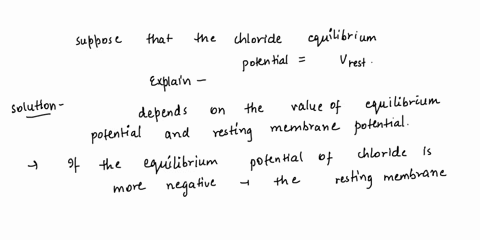 suppose that the chloride equilibrium
potential = Vrest.
Explain -
Solution - depends on the value of equilibrium
potential and resting membrane potential.
→ If the equilibrium potential of chloride is
more negative → the resting membrane